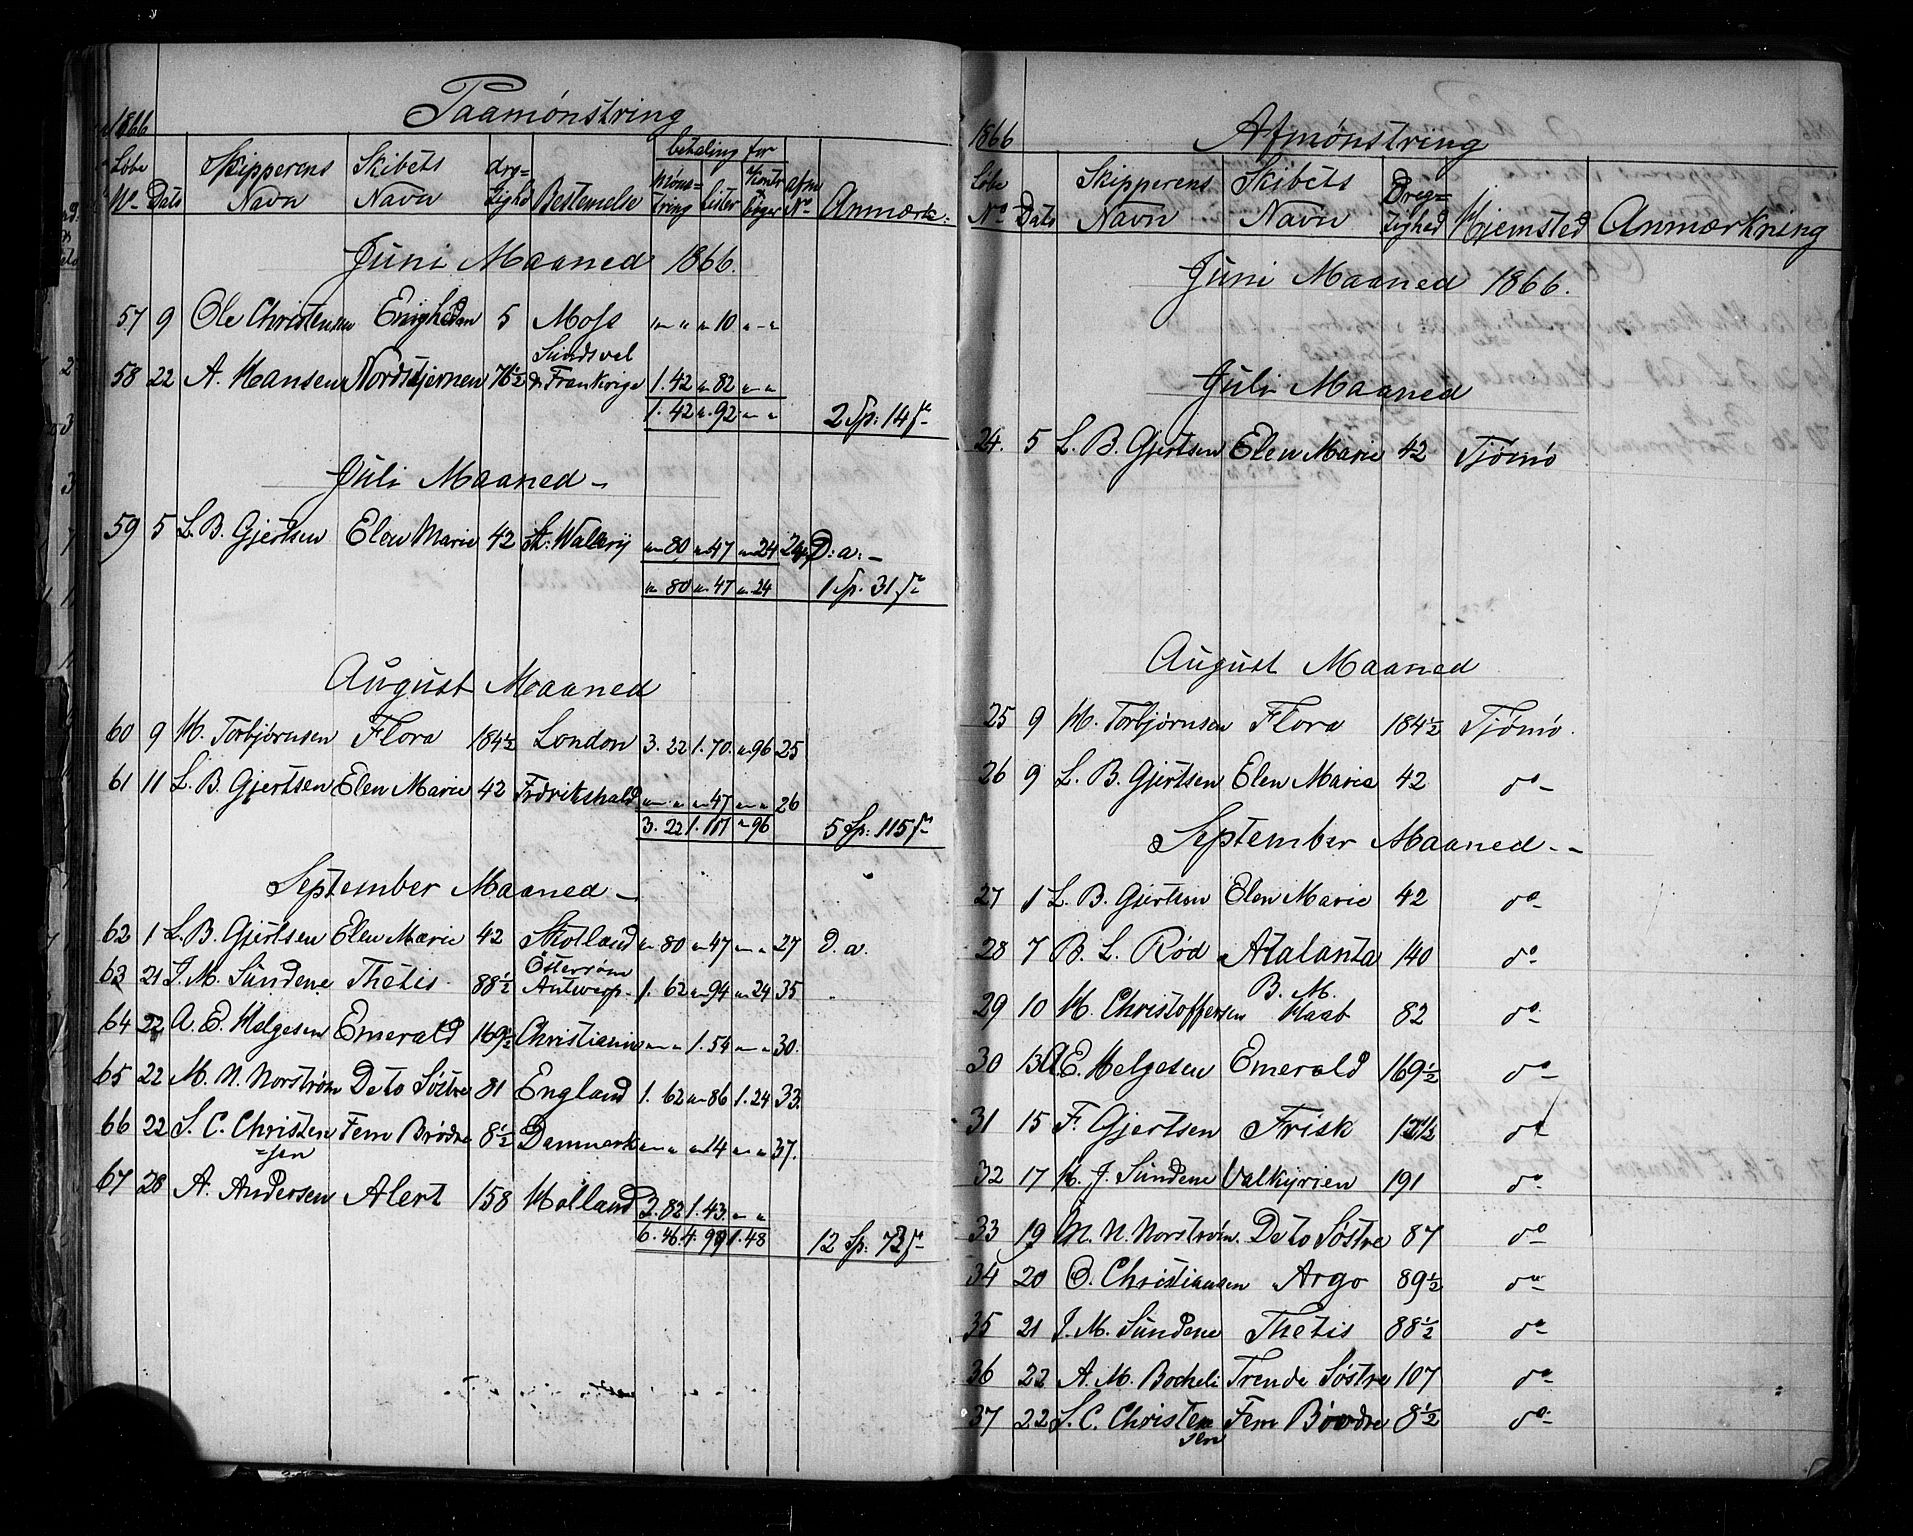 Paamønstring
1866
betaling for
Løbe No Dato Skipperens Navn Skibets Navn dræ=gtighd Bestemelse Møns=tring Lister afm No Anmærk.
Juni Maaned 1866.
57 9 Ole Christensen Enigheden 5 Moss " " " 10 " "
58 22 A. Hansen Nordstjernen 76½ Sundsval & Frankrige 1. 42 " 82 " "
1. 42 " 92 " " 2 Sp: 14 s
Juli Maaned
59 5 L. B. Gjertsen Elen Marie 42 St. Wallerij " 80 " 47 " 24 24 D: a:
" 80 " 47 " 24 1 Sp. 31 s
August Maaned
60 9 H. Torbjørnsen Flora 184½ London 3. 22 1. 70 " 96 25
61 11 L. B. Gjertsen Elen Marie 42 Fredrikshald " " " 47 " " 26
3. 22 1. 117 " 96 5 Sp: 115 s
September Maaned
62 1 L. B. Gjertsen Elen Marie 42 Skotland " 80 " 47 " " 27 D. a.
63 21 J. M. Sundene Thetis 88½ Antwerp 1. 62 " 94 " 24 35
64 22 A. E. Helgesen Emerald 169½ Christiania " " 1. 54 " " 30.
65 22 M. N. Norstrøm De to Søstre 81 England 1. 62 " 86 1. 24 33.
66 22 S. C. Christen=sen Fem Brødre 8½ Danmark " " " 14 " " 37.
67 28 A. Andersen Alert 158 Holland 2. 82 1. 43. " "
6. 46 4. 98 1. 48 12 Sp: 72 s
1866
Afmønstring
Løbe No Dato Skipperens Navn Skibets Navn Dræg=tighed Hjemsted Anmærkning
Juni Maaned 1866.
Juli Maaned
24. 5 L. B. Gjertsen Elen Marie 42 Tjømø
August Maaned
25 9 H. Torbjørnsen Flora 184½ Tjømø.
26 9 L. B. Gjertsen Elen Maria 42 do
September Maaned
27 1 L. B. Gjertsen Elen Marie 42 do
28 7 B. L. Rød Atalanta 140 do
29 10 H. Christoffersen B. M. Haab 82 do
30 13 A. E. Helgesen Emerald 169½ do
31 15 F. Gjertsen Frisk do
32 17 H. J. Sundene Valkyrien 191 do
33 19 M. N. Norstrøm. De to Søstre 87 do
34 20 O. Christiansen Argo 89½ do
35 21 J. M. Sundene Thetis 88½ do
36 22 A. M. Bocheli Trende Søstre 107 do
37 22 S. C. Christensen Fem Brødre 8½ do